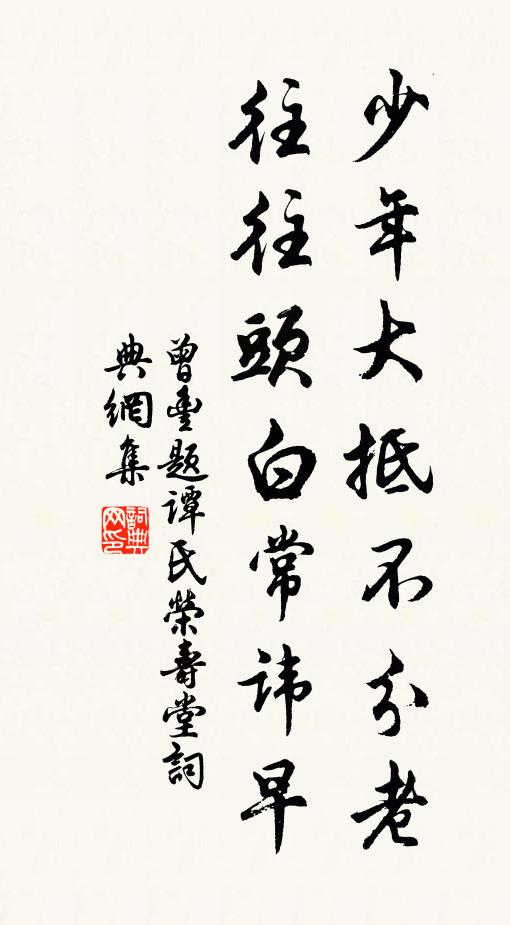 少年大抵不分老
往往頭白常諱早
曾豐題譚氏榮壽堂詞
典網集
詞典網印